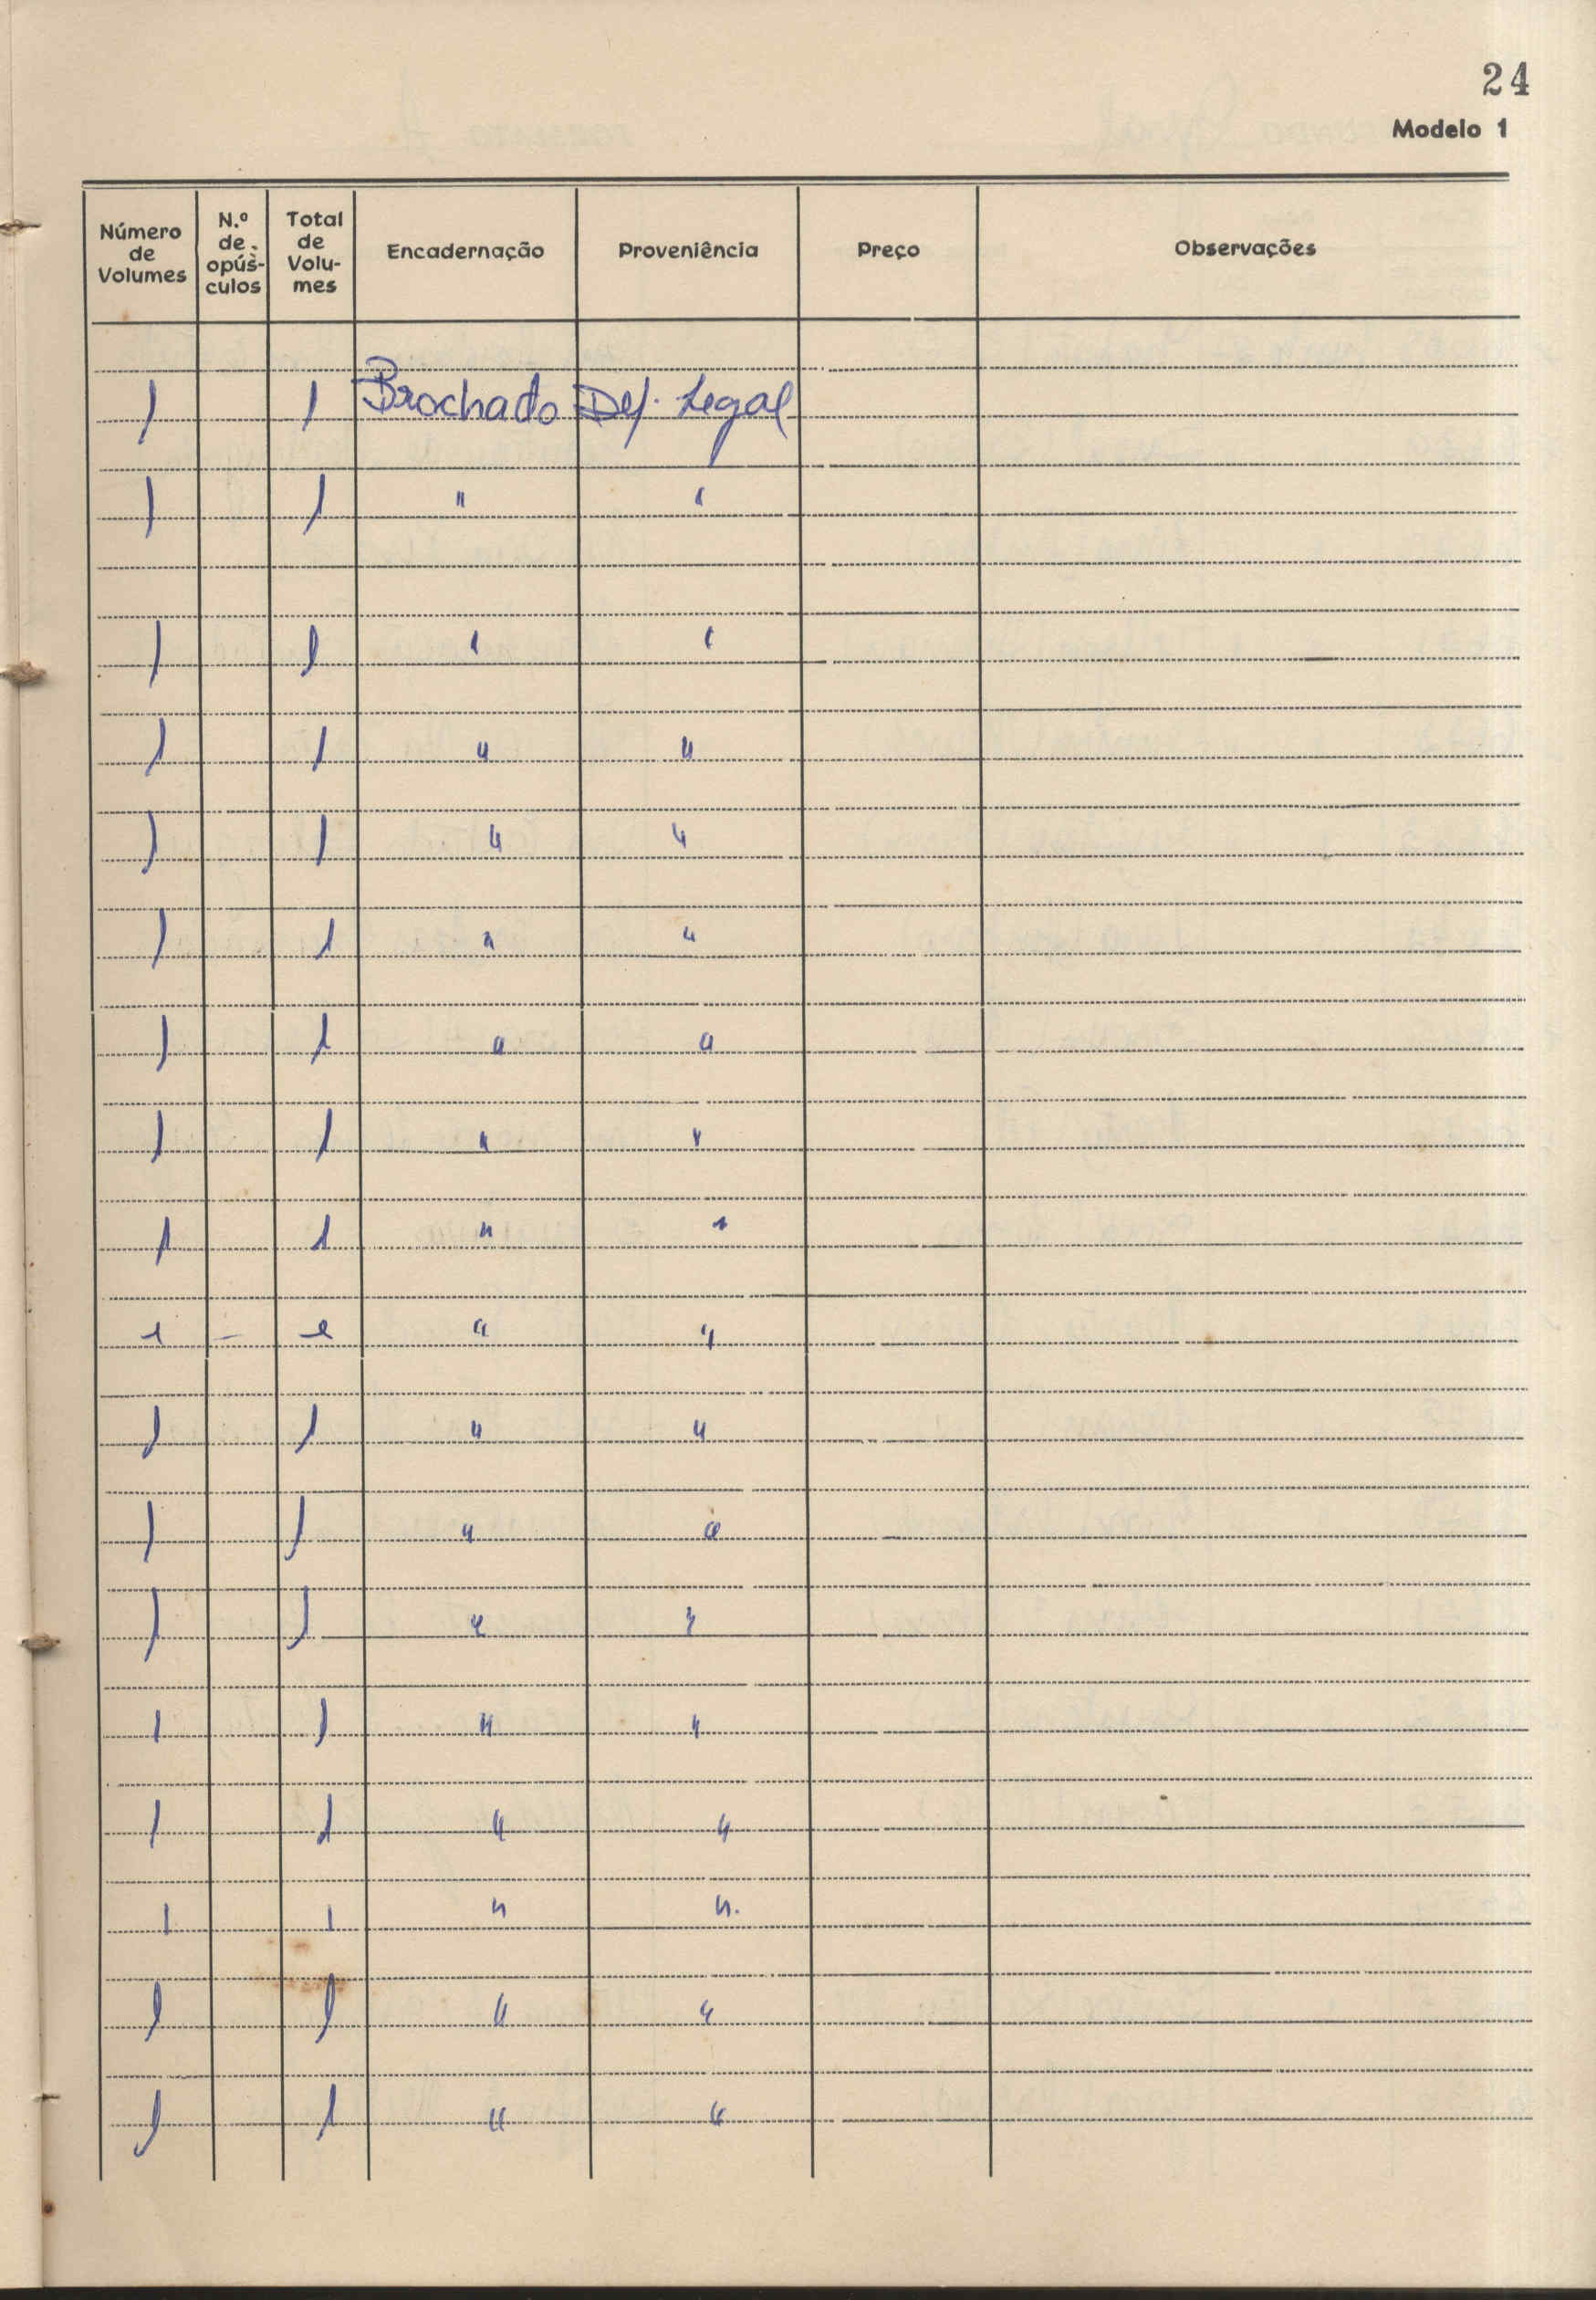 24
Modelo 1
Número de Volumes | N.º de opús-culos | Total de Volu-mes | Encadernação | Proveniência | Preço | Observações
1 | | 1 | Brochado | Dep. Legal
1 | | 1 | " | "
1 | | 1 | " | "
1 | | 1 | " | "
1 | | 1 | " | "
1 | | 1 | " | "
1 | | 1 | " | "
1 | | 1 | " | "
1 | | 1 | " | "
1 | - | 1 | " | "
1 | | 1 | " | "
1 | | 1 | " | "
1 | | 1 | " | "
1 | | 1 | " | "
1 | | 1 | " | "
1 | | 1 | " | "
1 | | 1 | " | "
1 | | 1 | " | "